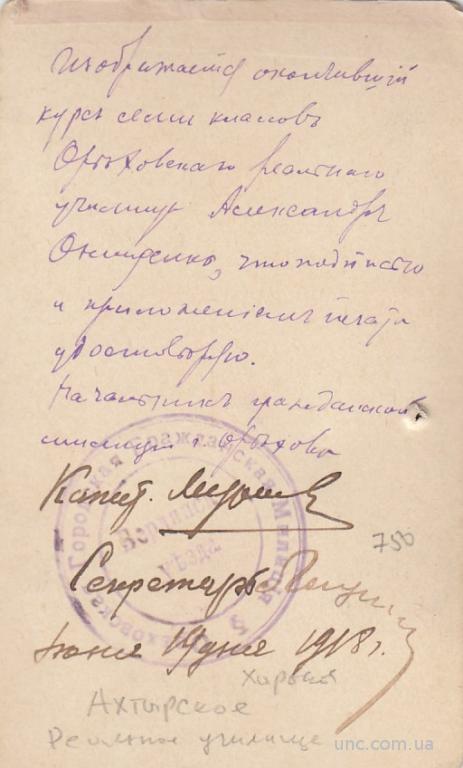 Изображается окончившій
курсъ семи классовъ
Орѣховскаго реальнаго
училища Александръ
что подписью
и приложеніемъ печати
удостовѣряю.
Начальникъ гражданской
милиціи г. Орѣхова
Капит.
Секретарь
Іюня 19 дня 1918 г.
Ореховская Городская Гражданская Милиція
Бердянск уѣзда
750
Харьков
Ахтырское
Реальное училище
unc.com.ua